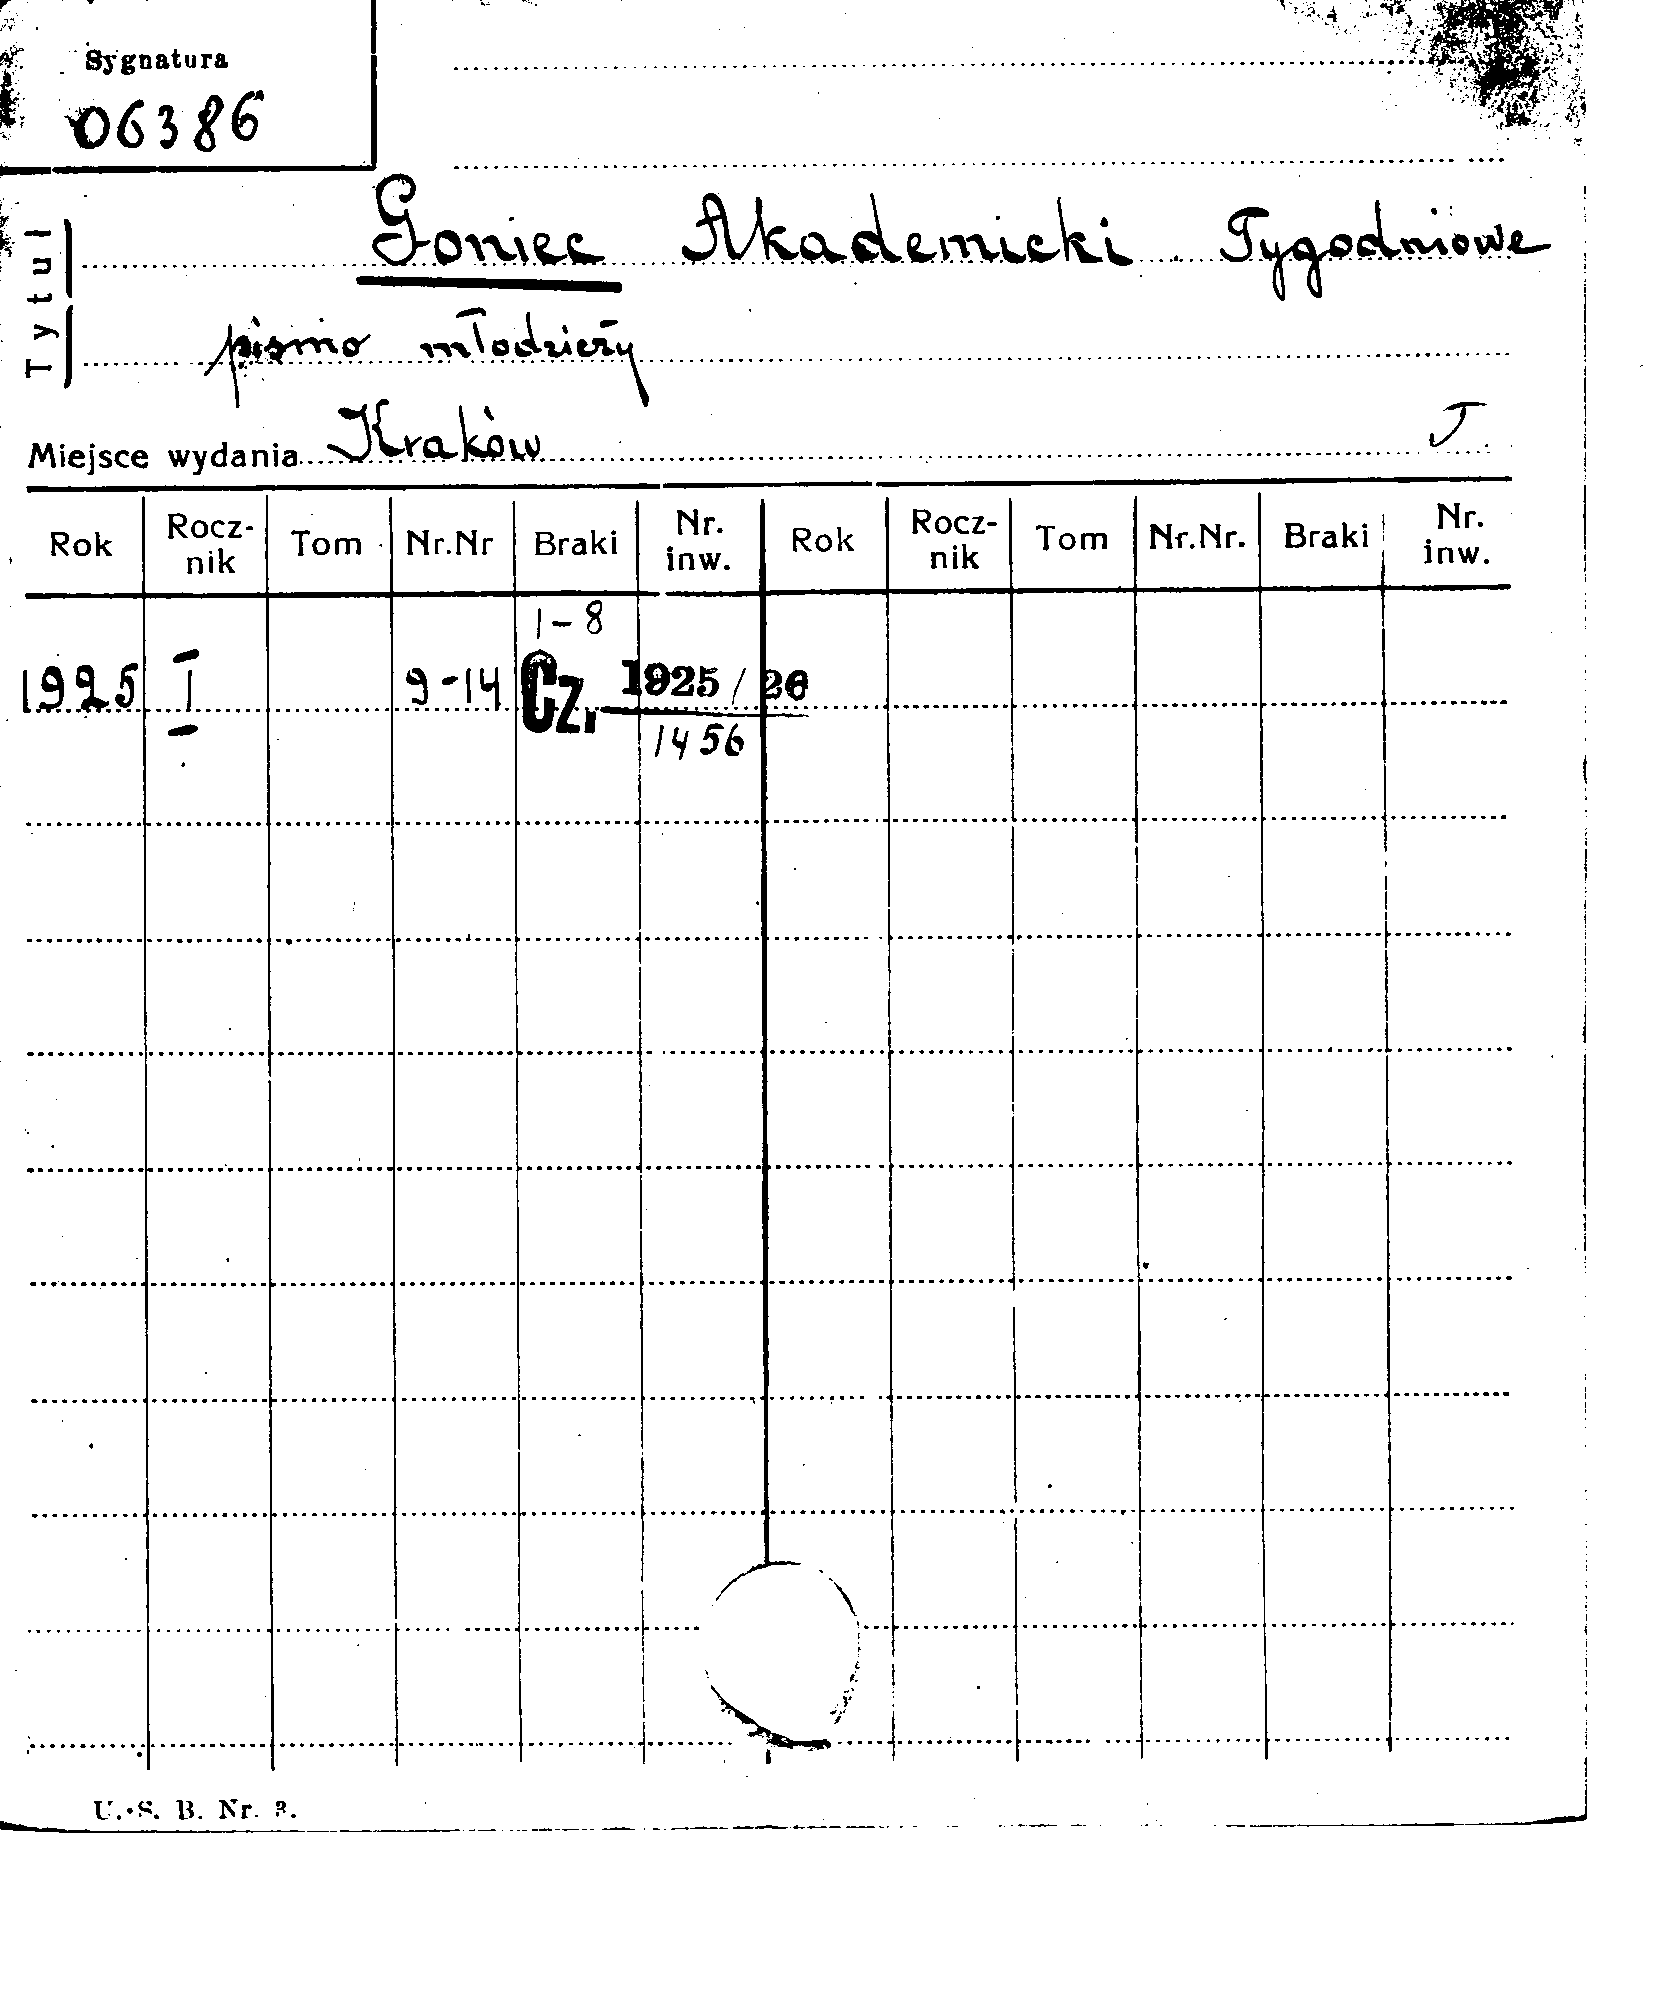 Sygnatura
06386
Tytuł
Goniec Akademicki. Tygodniowe
pismo młodzieży
Miejsce wydania Kraków J
Rok Rocz-nik Tom Nr.Nr Braki Nr. inw. Rok Rocz-nik Tom Nr.Nr. Braki Nr. inw.
1-8
1925 I 9-14 Cz. 1925/26
1456
U. S. B. Nr. 3.